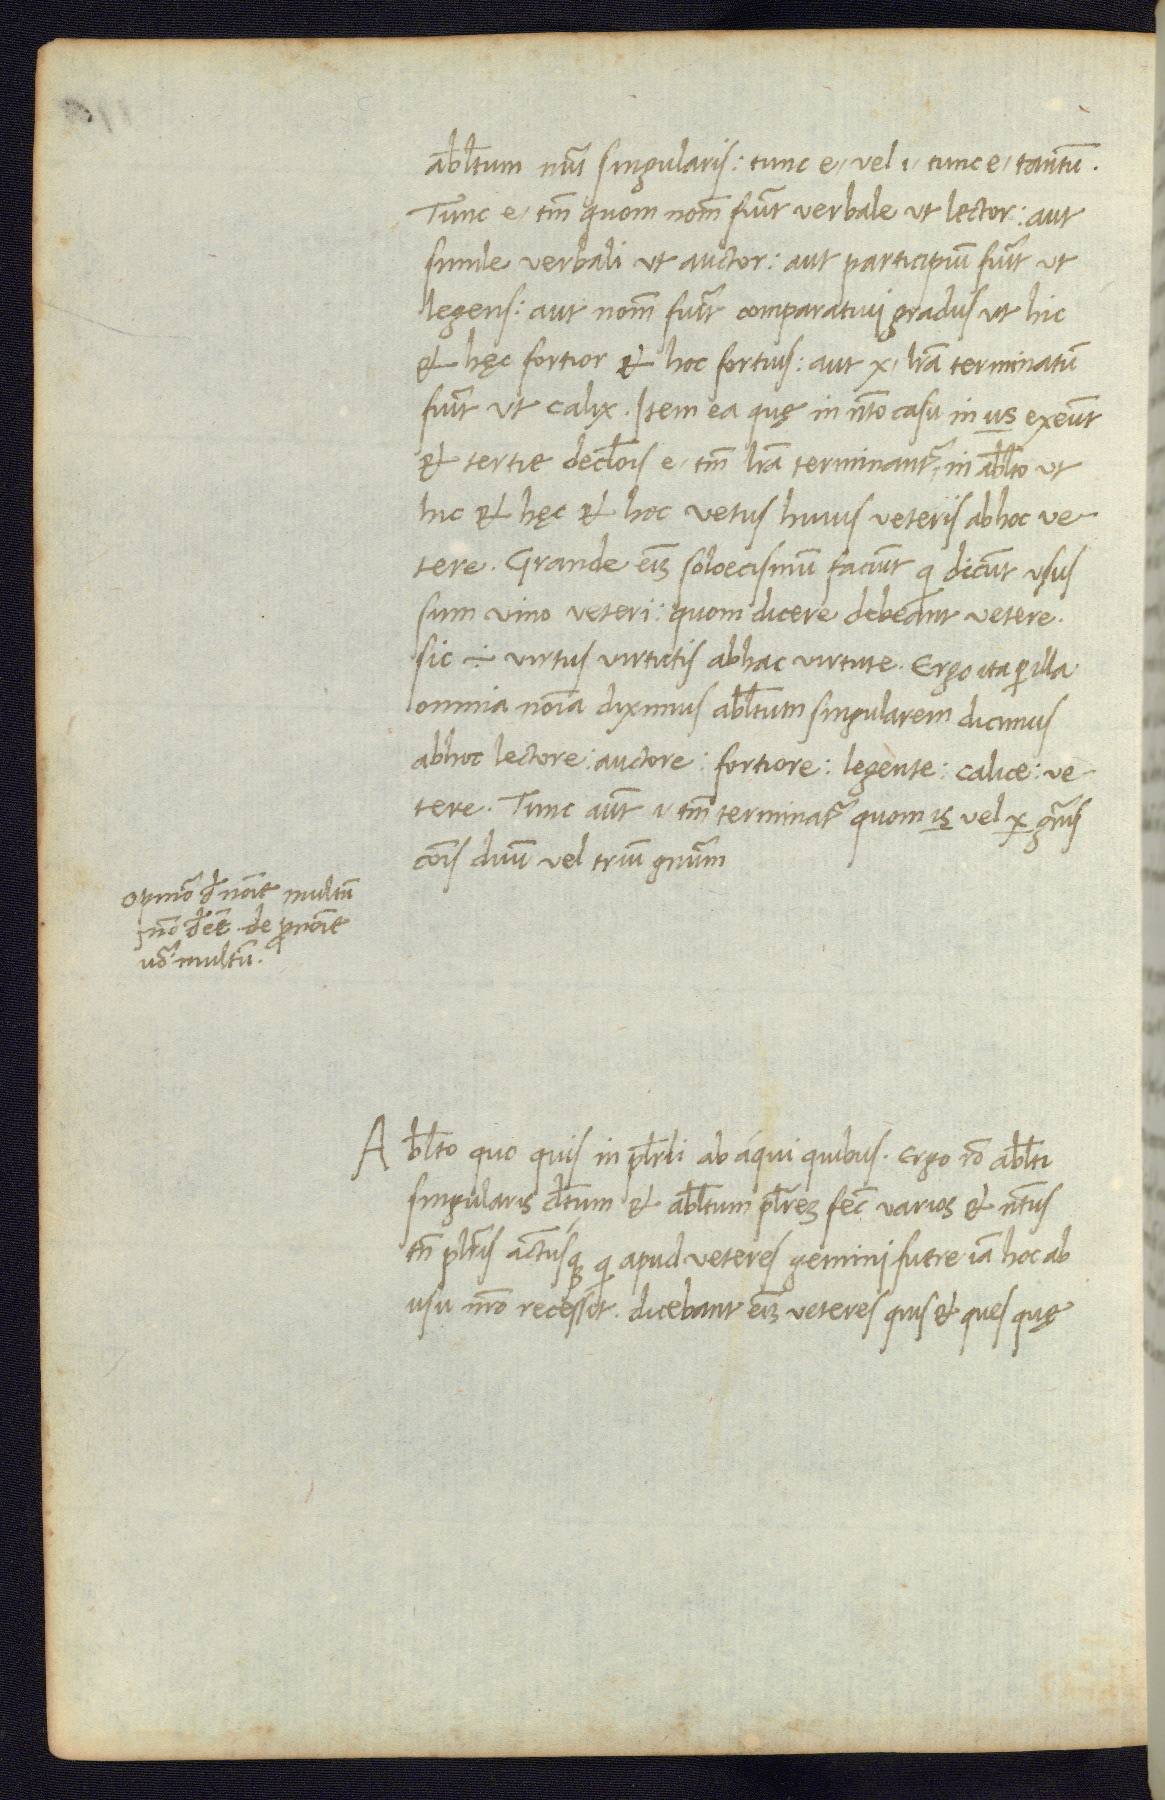 abłtum nũi singularis: tunc e, vel i, tunc e, tantũ.
Tunc e, tm̃ quom nom̃ fuĩt verbale ut lector: aut
simile verbali ut auctor: aut participiũ fuĩt ut
legens: aut nom̃ fuĩt comparativi gradus ut hic
& hęc fortior & hoc fortius: aut x, lr̃a terminatũ
fuĩt ut calix. Item ea quę in nt̃o casu in us exeũt
& tertie decłois e, tm̃ lr̃a terminant᷑, in abłto ut
hic & hęc & hoc vetus huius veteris abhoc ve
tere. Grande eiȝ soloecismũ faciũt q̃ dicũt usus
sum vino veteri: quom dicere debeant vetere.
sic ÷ virtus virtutis abhac virtute. Ergo ita ꝑ illa
omnia noĩa diximus abłtum singularem dicimus
abhoc lectore: auctore: fortiore: legente: calice: ve
tere. Tunc aũt i, tm̃ terminat᷑ quom is vel x gñis
cõis duũ vel triũ gnũm
opinõ đ noĩe multũ
ĩno đẽt de ꝓnoĩe
uõ multũ.
Abłto quo quis in płrli ab aqui quibus. Ergo rõ abłti
singularis đtum & abłtum płreȝ fec̃ varios & nt̃us
tñ płris actusqȝ q̃ apud veteres gemini fuere iã hoc ab
usu nr̃o recessit. dicebant eiȝ veteres quis & ques quę